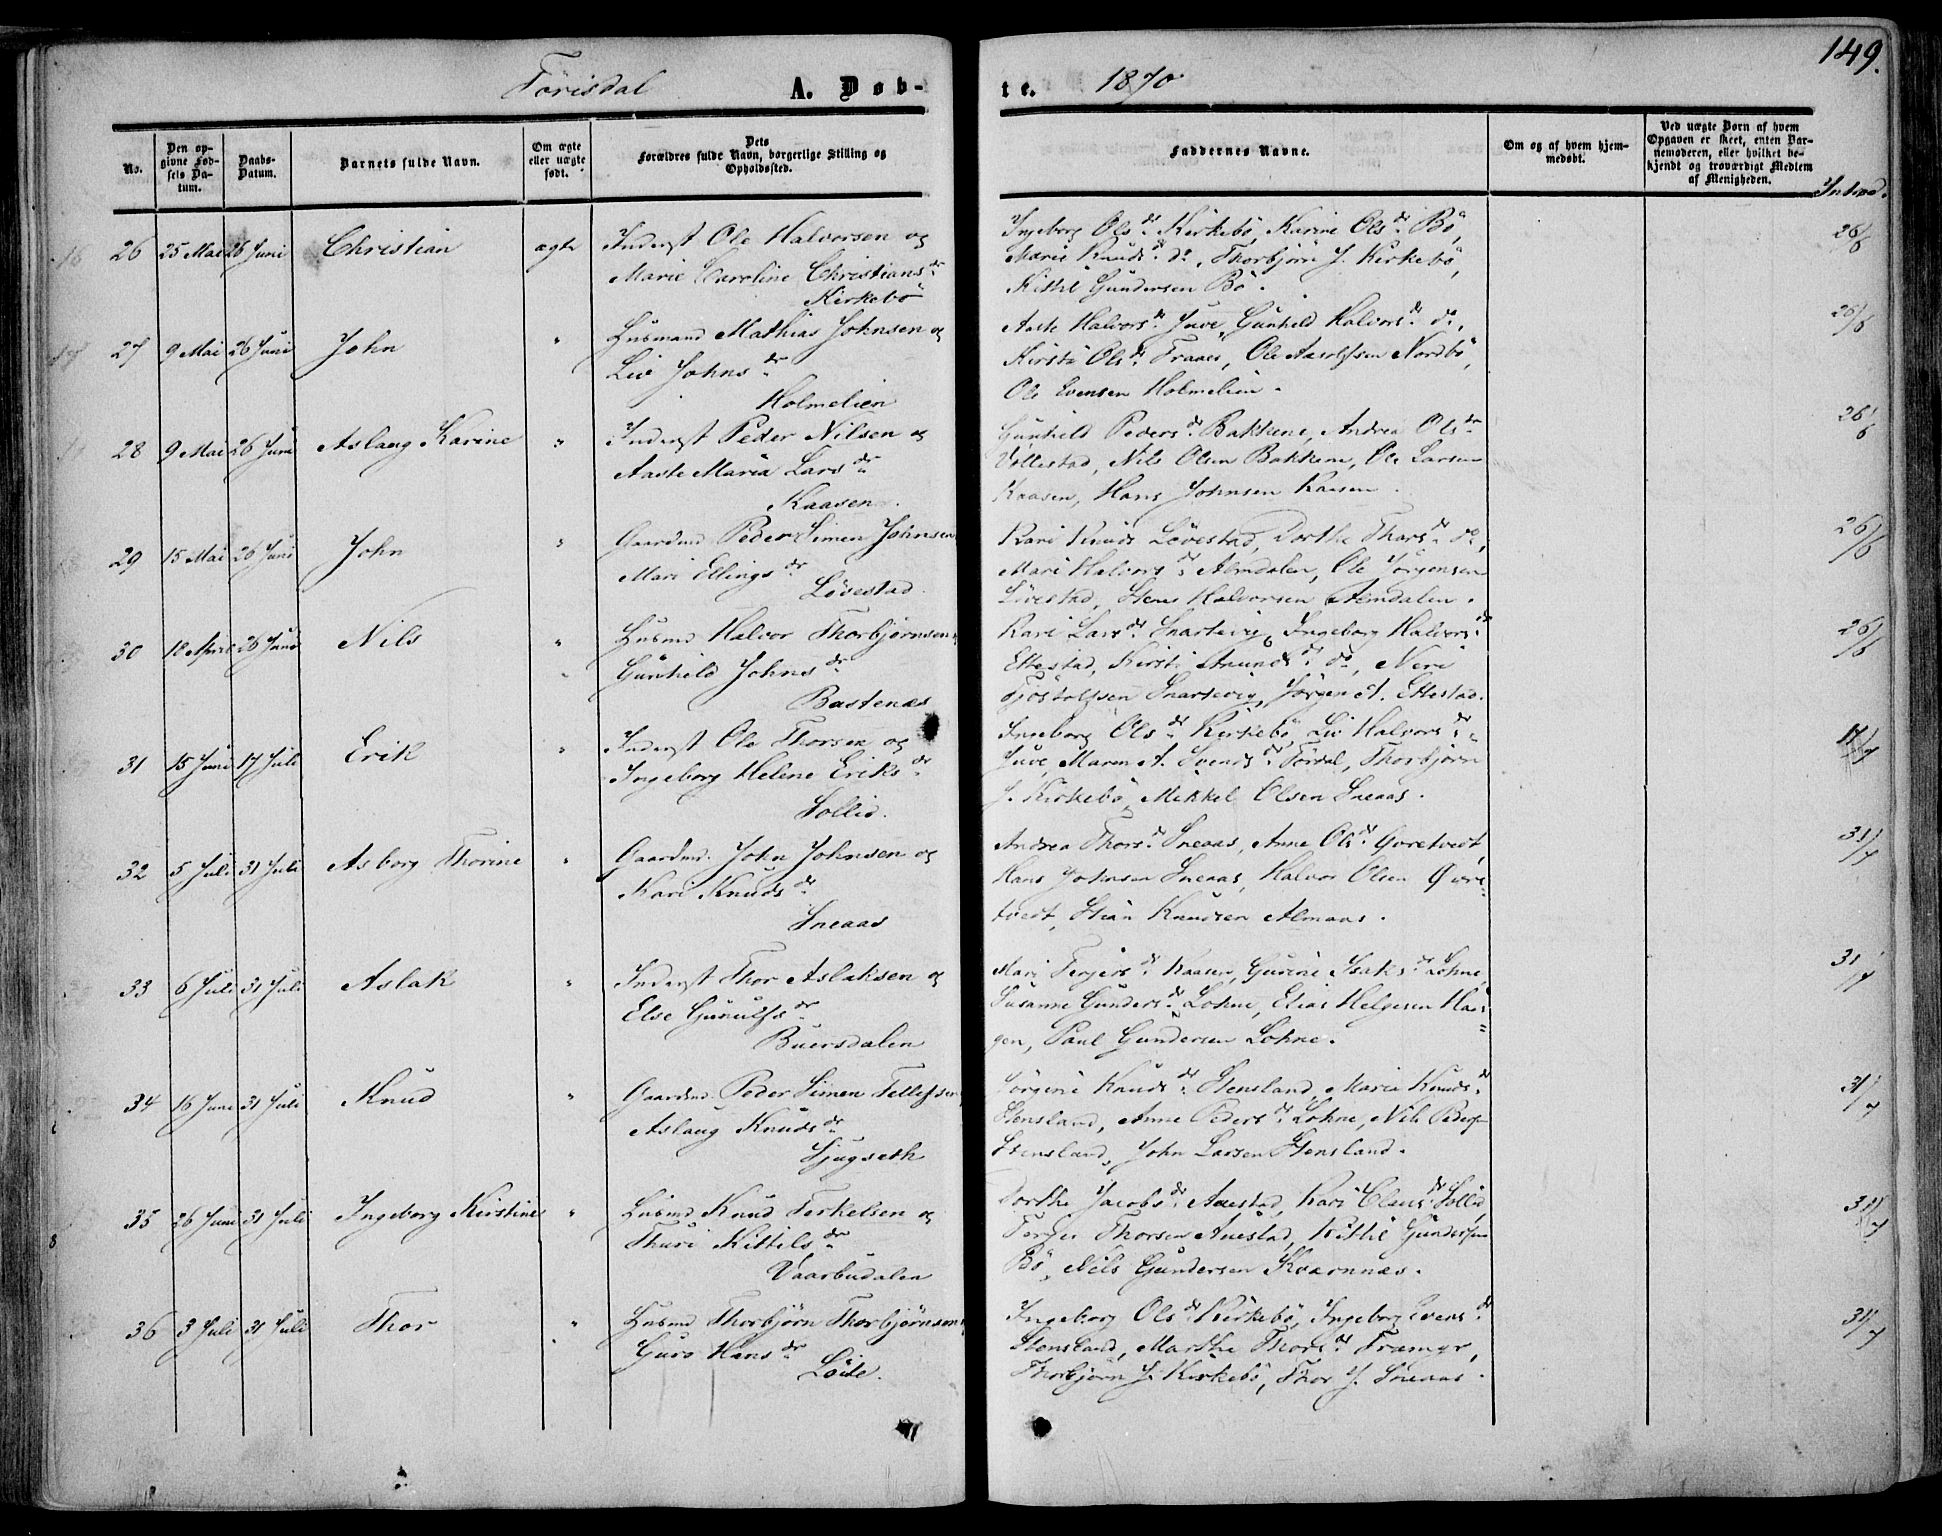 149.
Törisdal A. Døb-
te. 1870
No.
Den op-
givne Fød-
sels Da-
tum.
Daabs-
Datum.
Barnets fulde Navn.
Om ægte
eller uægte
født.
Dets
Forældres fulde Navn, borgerlige Stilling og
Opholdssted.
Faddernes Navne.
Om og af hvem hjem-
medøbt.
Ved uægte Børn af hvem
Opgaven er skeet, enten Bar-
nemoderen, eller hvilket be-
kjendt og troværdigt Medlem
af Menigheden.
26 25 Mai 26 Juni Christian ægte Inderst Ole Halvorsen og
Marie Caroline Christiansdr
Kirkebö
Ingeborg Olsdr Kirkebö, Karine Olsdr Bö,
Marie Knudsdr do, Thorbjörn J. Kirkebö,
Kittil Gundersen Bö.
26/6
27 9 Mai 26 Juni John " Husmand Mathias Johnsen og
Liv Johnsdr
Holmelien
Aaste Halvorsdr Juve, Gunhild Halvorsdr do,
Kirsti Olsdr Fraaes, Ole Aasolfsen Nordbö,
Ole Evensen Holmelien.
26/6
28 9 Mai 26 Juni Aslaug Karine " Inderst Peder Nilsen og
Aaste Maria Larsdr
Kaasen.
Gunhild Pedersdr Bakkene, Andrea Olsdr
Vollestad, Nils Olsen Bakkene, Ole Larsen
Kaasen, Hans Johnsen Kaasen.
26/6
29 15 Mai 26 Juni John " Gaardmd. Peder Simen Johnsen,
Mari Ellingsdr
Lövestad.
Kari Knuds Lövestad, Dorthe Tharsdr do,
Mari Halvorsdr Almdalen, Ole Jörgensen
Lövestad, Stene Halvorsen Almdalen.
26/6
30 18 April 26 Juni Nils " Husmd Halvor Thorbjørnsen,
Gunhild Johnsdr
Bastenæs
Kari Larsdr Snartevig, Ingeborg Halvorsdr
Ettestad, Kirsti Amundsdr do, Neri
Gjöstolfsen Snartevig, Jörgen A. Ettestad.
26/6
31 15 Juni 17 Juli Erik " Inderst Ole Thorsen og
Ingeborg Helene Eriksdr
Sollid.
Ingeborg Olsdr Kirkebö, Liv Halvorsdr
Juve, Maren A. Svendsdr Tördal, Thorbjörn
J. Kirkebö, Mikkel Olsen Sneaas.
17/7
32 5 Juli 31 Juli Asborg Thorine " Gaardmd. John Johnsen og
Kari Knudsdr
Sneaas
Andrea Thorsdr Sneaas, Anne Olsdr Gvretvedt,
Hans Johnsen Sneaas, Halvor Olsen Gvre-
tvedt, Stian Knudsen Almaas.
31/7
33 6 Juli 31 Juli Aslak " Inderst Thor Aslaksen og
Else Gunulfsdr
Buersdalen
Mari Terjersdr Kaasen, Gurine Isaksdr Lohne,
Susanne Gundersdr Lohne, Elias Helgesen Ha-
gen, Paul Gundersen Lohne.
31/7
34 16 Juni 31 Juli Knud " Gaardmd. Peder Simen Tellefsen,
Aslaug Knudsdr
Sjugseth
Jörgine Knudsdr Stensland, Maria Knudsdr
Stensland, Anne Pedersdr Lohne, Nils Peders
Stensland, John Larsen Stensland.
31/7
35 26 Juni 31 Juli Ingeborg Kirstine " Husmd Knud Terkelsen og
Thuri Kittilsdr
Vaarbudalen
Dorthe Jacobsdr Auestad, Kari Clausdr Sollid,
Terger Thorsen Auestad, Kittil Gundersen
Bö, Nils Gundersen Kvernnæs.
31/7
36 3 Juli 31 Juli Thor " Husmd Thorbjörn Thorbjörnsen,
Guro Hansdr
Löile.
Ingeborg Olsdr Kirkebö, Ingeborg Evensdr
Stensland, Marthe Thorsdr Framyr,
Thorbjörn J. Kirkebö, Thor J. Sneaas.
31/7